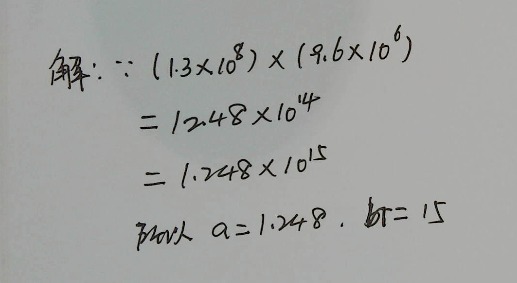 解：∵ (1.3×10⁸)×(9.6×10⁶)
=12.48×10¹⁴
=1.248×10¹⁵
所以 a=1.248. b=15